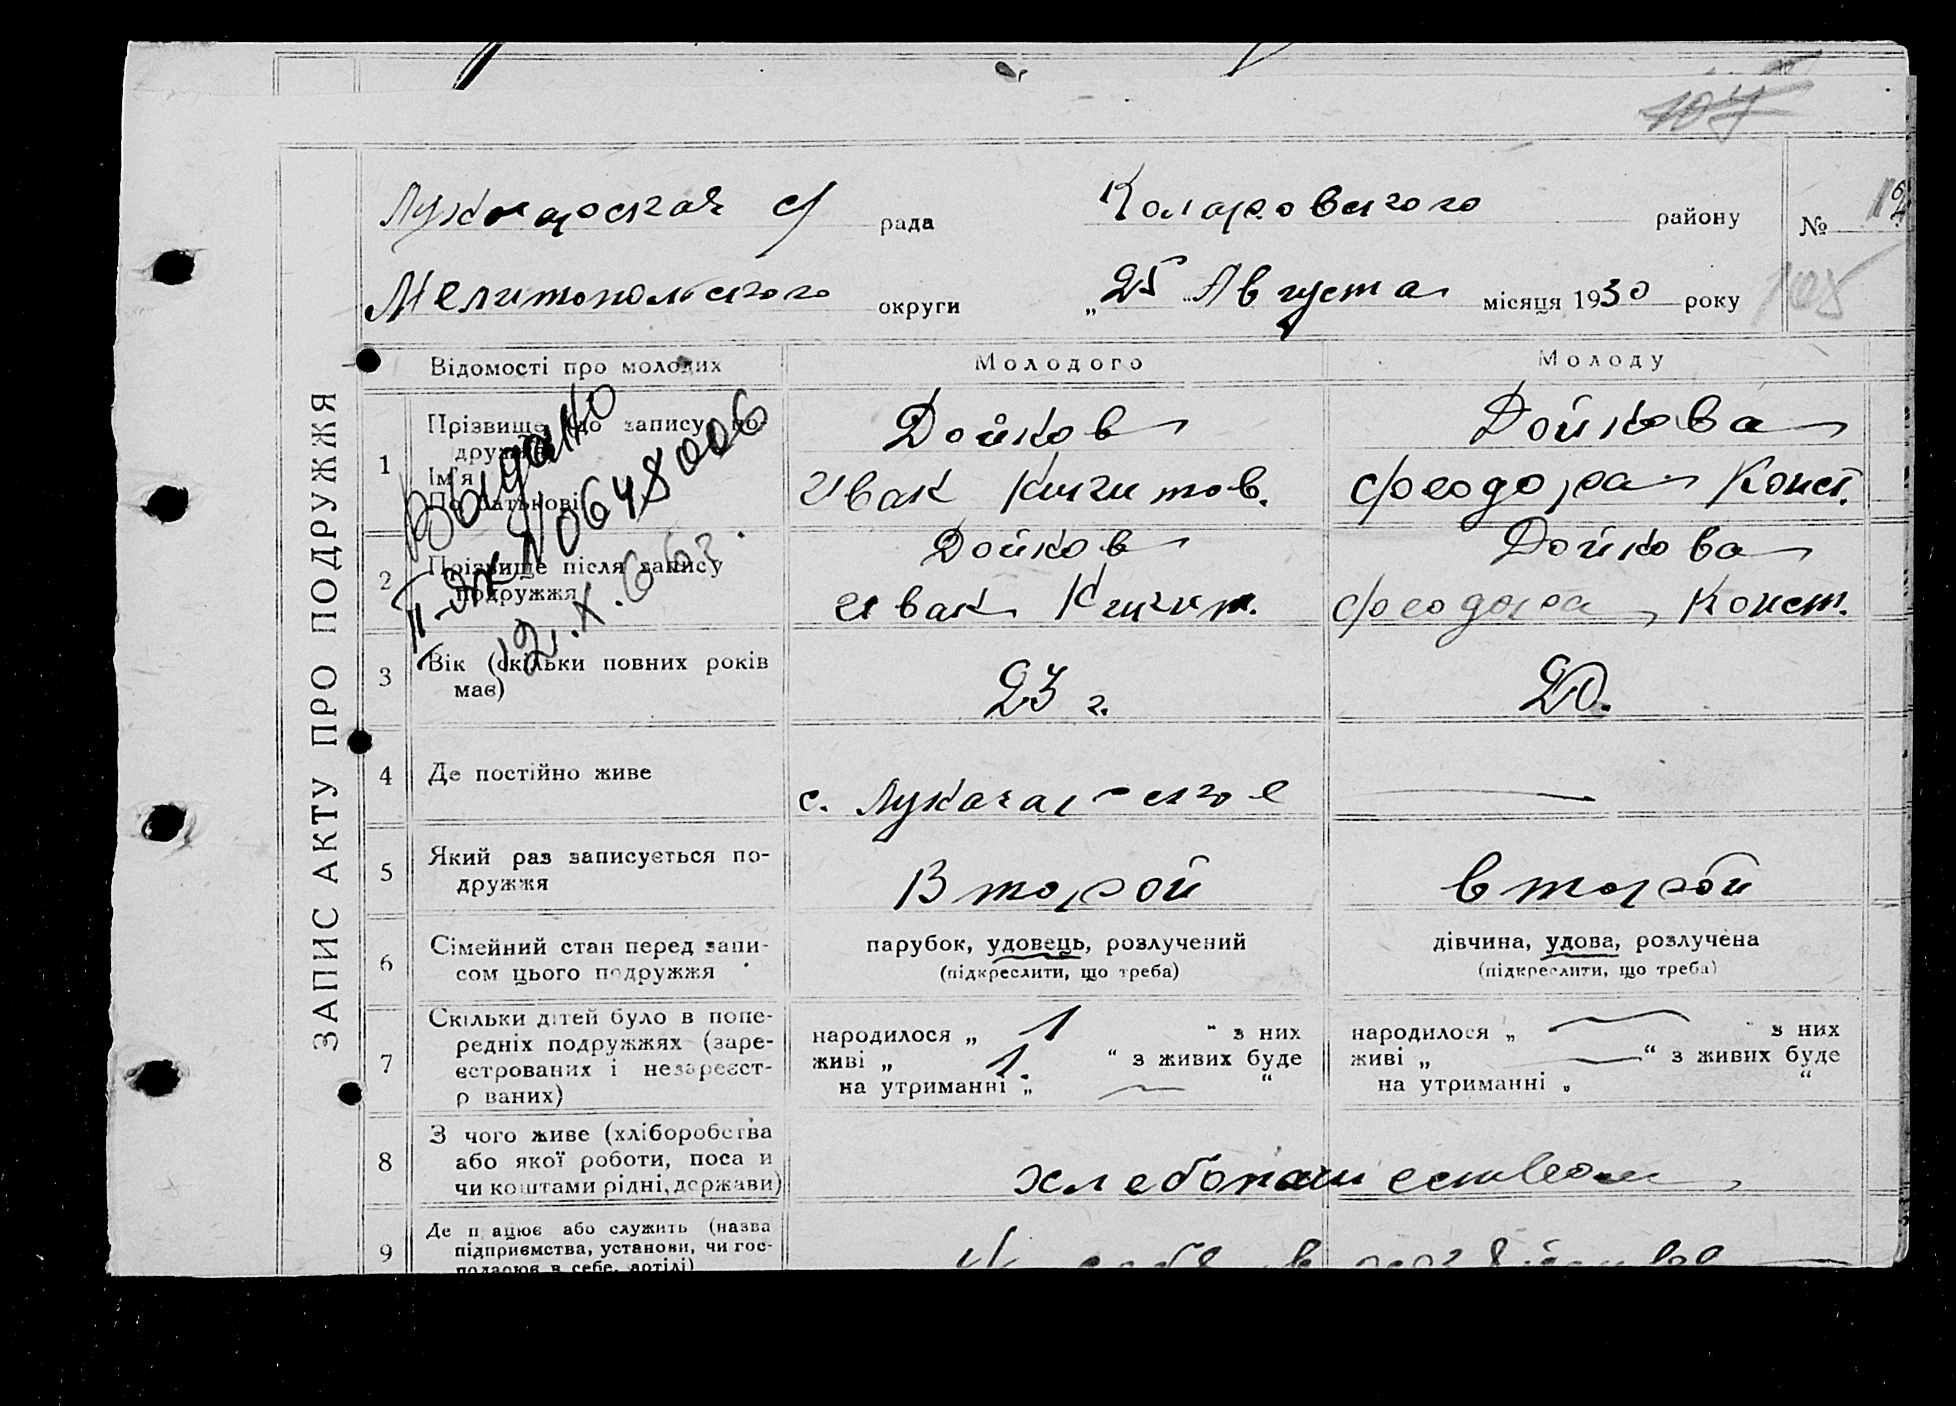 104
ЗАПИС АКТУ ПРО ПОДРУЖЖЯ
с/ рада Коларовского району №
Мелитопольского округи „25 Августа місяця 1930 року 105
Відомості про молодих Молодого Молоду
1 Прізвище до запису подружжя Дойков Дойкова
Ім'я По батькові Иван Никитов. Феодора Конст.
2 Прізвище після запису подружжя Дойков Дойкова
Иван Никит. Феодора Конст.
Выдано
II-ЭК №0648006
12.X.63.
3 Вік (скільки повних років має) 23 г. 20.
4 Де постійно живе с. —
5 Який раз записується по-
дружжя Второй второй
6 Сімейний стан перед запи-
сом цього подружжя парубок, удовець, розлучений дівчина, удова, розлучена
(підкреслити, що треба) (підкреслити, що треба)
7 Скільки дітей було в попе-
редніх подружжях (заре-
єстрованих і незареєст-
р ваних) народилося „ 1 “ з них народилося „ — “ з них
живі „ 1. “ з живих буде живі „ — “ з живих буде
на утриманні „ — “ на утриманні „ “
8 З чого живе (хліборобства
або якої роботи, поса и
чи коштами рідні, держави) хлебопашеством
9 Де п ацює або служить (назва
підприємства, установи, чи гос-
подарює в себе, артілі)